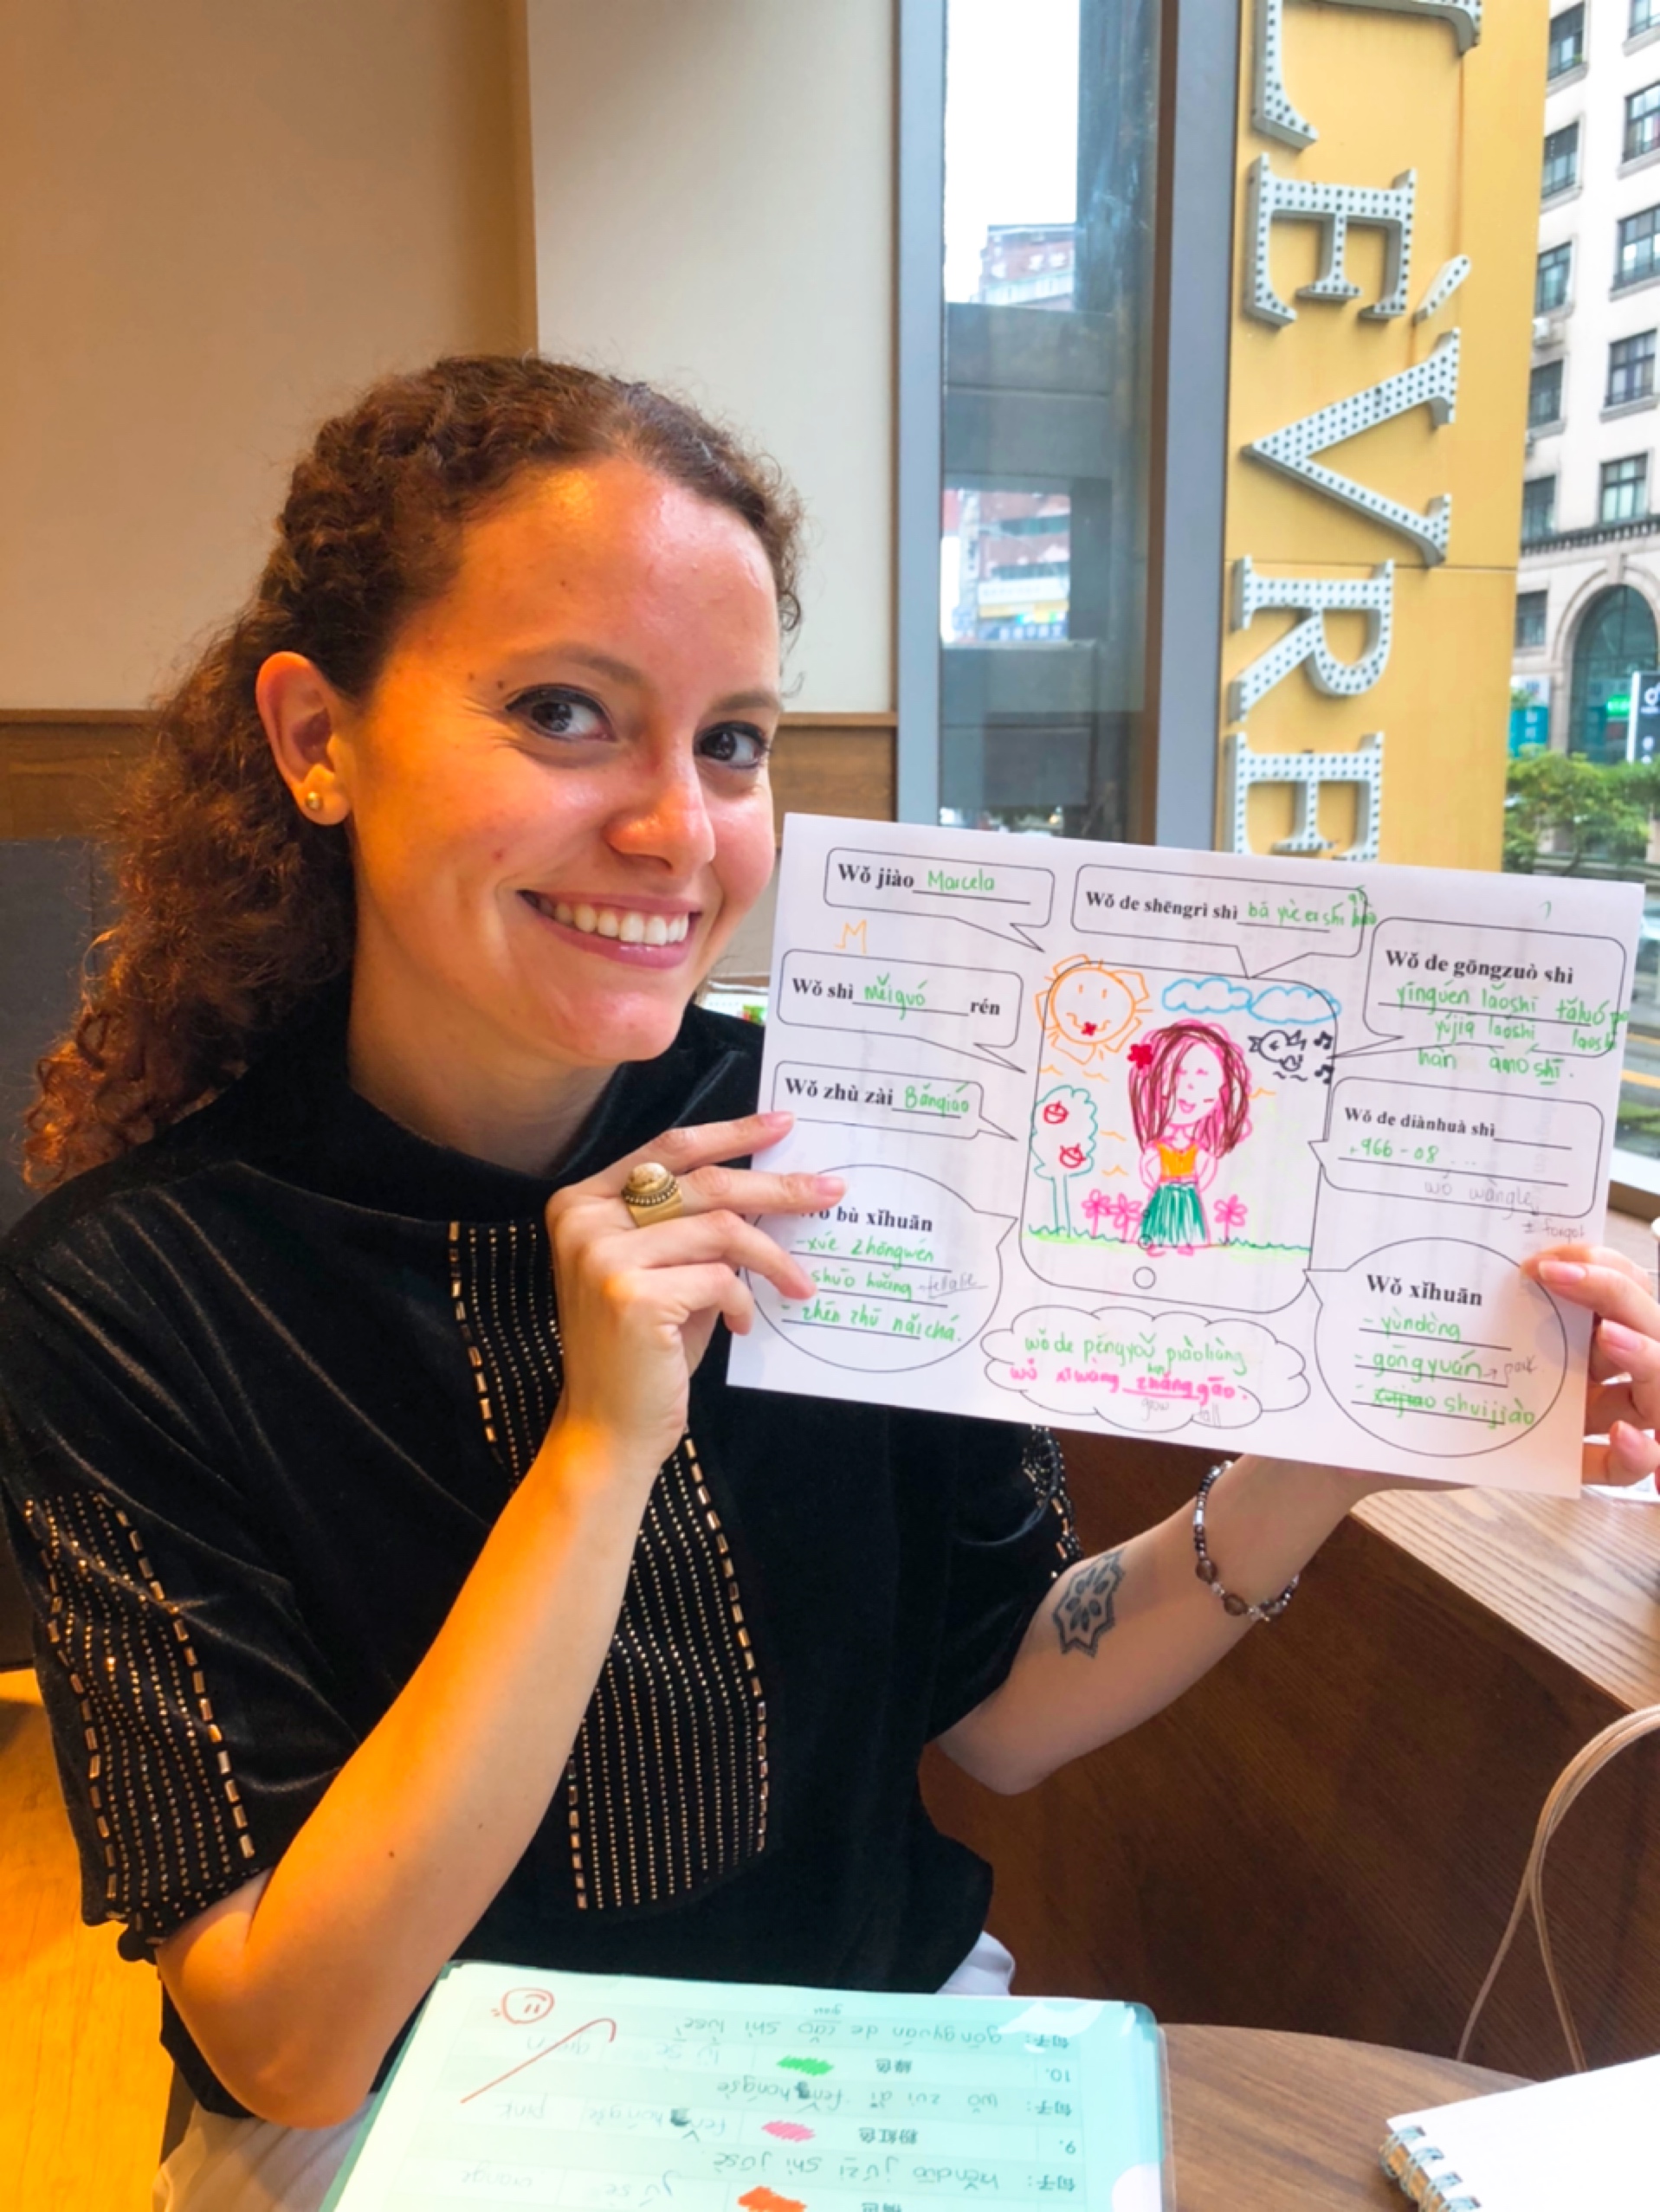 LÈVRE
Wǒ jiào Marcela
Wǒ de shēngrì shì bā yuè
M
Wǒ shì měiguó rén
Wǒ de gōngzuò shì
yīngwén lǎoshī tǎluó
yújiā lǎoshī
hàn ànmó shī.
Wǒ zhù zài Bǎnqiáo
Wǒ de diànhuà shì
+966-08...
wǒ wàngle
I forgot
bù xǐhuān
-xué zhōngwén
shuō huǎng
- zhēn zhū nǎichá.
Wǒ xǐhuān
- yùndòng
- gōngyuán → park
- shuìjiào
wǒ de péngyǒu piàoliàng
wǒ xīwàng zhǎng gāo.
grow tall
句子: gōngyuán de cǎo shì lǜsè
10. 綠色 lǜ sè green
句子: wǒ zuì ài fěnhóngsè
9. 粉紅色 fěnhóngsè pink
句子: júzi shì júsè
橘色 jú sè orange